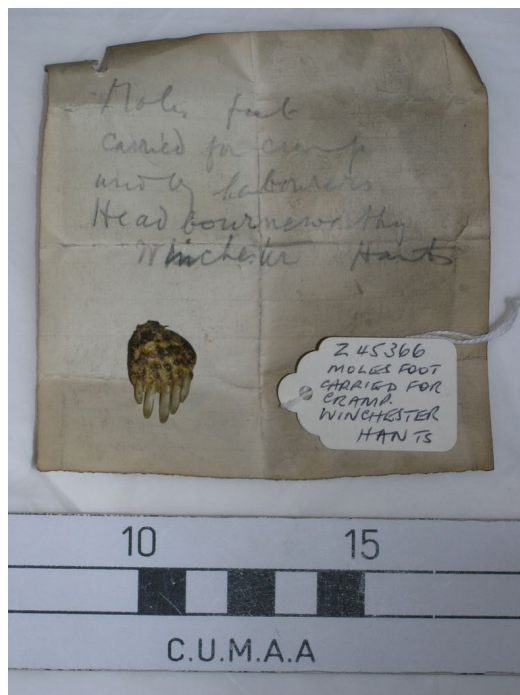 Moles foot
carried for cramp
used by labourers
Headbourneworthy
Winchester Hants
Z 45366
MOLES FOOT
CARRIED FOR
CRAMP.
WINCHESTER
HANTS
10 15
C.U.M.A.A